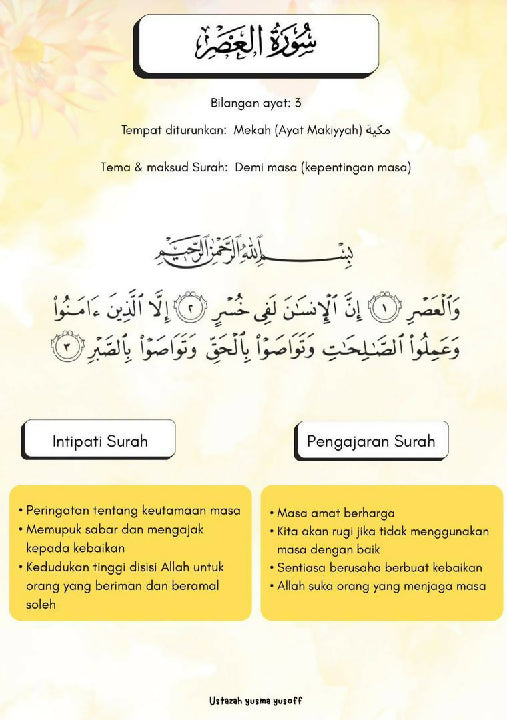 سُورَةُ العَصْرِ
Bilangan ayat: 3
Tempat diturunkan: Mekah (Ayat Makiyyah) مكية
Tema & maksud Surah: Demi masa (kepentingan masa)
بِسْمِ ٱللَّهِ ٱلرَّحْمَٰنِ ٱلرَّحِيمِ
وَٱلْعَصْرِ ١ إِنَّ ٱلْإِنسَٰنَ لَفِى خُسْرٍ ٢ إِلَّا ٱلَّذِينَ ءَامَنُوا۟
وَعَمِلُوا۟ ٱلصَّٰلِحَٰتِ وَتَوَاصَوْا۟ بِٱلْحَقِّ وَتَوَاصَوْا۟ بِٱلصَّبْرِ ٣
Intipati Surah
• Peringatan tentang keutamaan masa
• Memupuk sabar dan mengajak
kepada kebaikan
• Kedudukan tinggi disisi Allah untuk
orang yang beriman dan beramal
soleh
Pengajaran Surah
• Masa amat berharga
• Kita akan rugi jika tidak menggunakan
masa dengan baik
• Sentiasa berusaha berbuat kebaikan
• Allah suka orang yang menjaga masa
Ustazah yusma yusoff